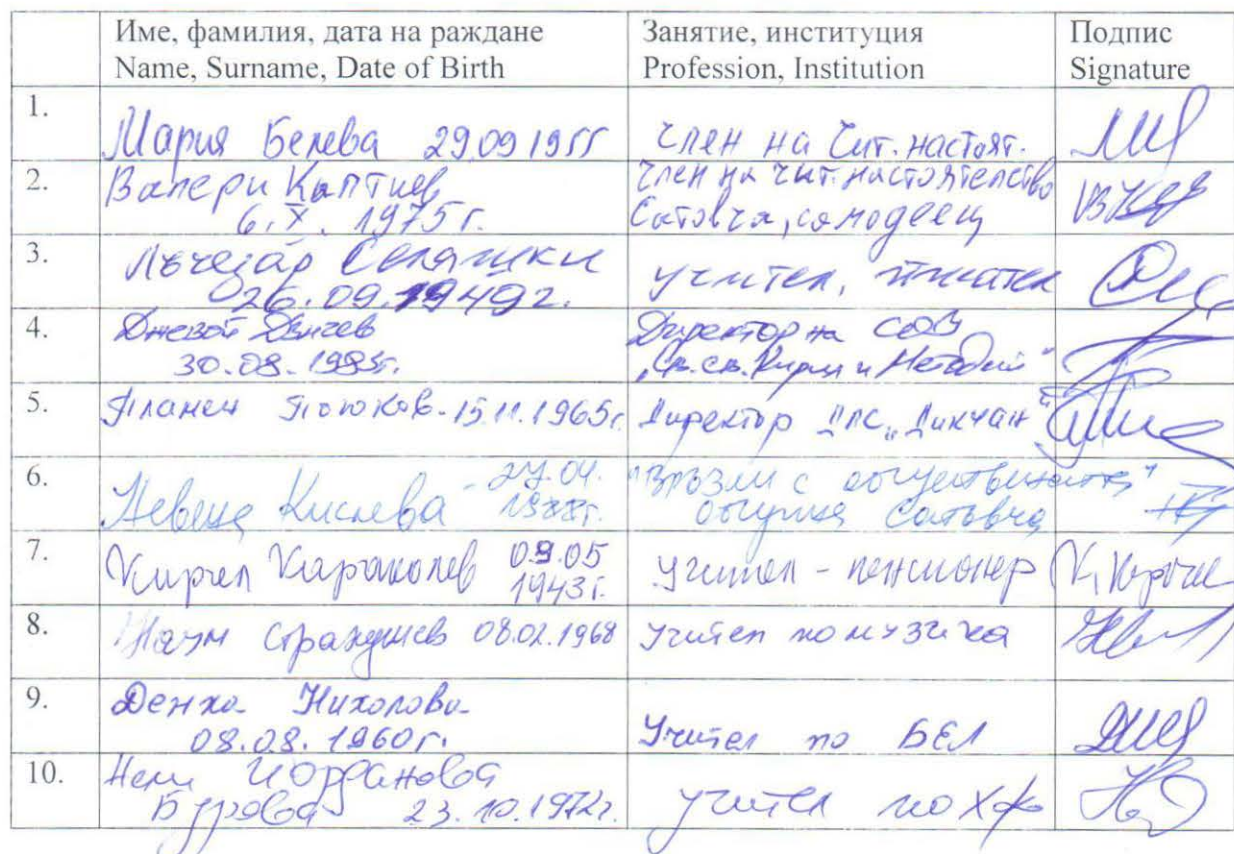 Име, фамилия, дата на раждане
Name, Surname, Date of Birth
Занятие, институция
Profession, Institution
Подпис
Signature
1.
Мария Белева 29.09 1955
член на Чит. настоят.
2.
Валери Каптиев
6.X. 1975г.
член на чит. настоятелство
Сатовча, самодеец
3.
Лъчезар Селяшки
26.09.1949г.
учител, писател
4.
Джевот
30.08.1985г.
Директор на СОУ
„Св. св. Кирил и Методий"
5.
Пламен - 15.11.1965г.
Директор ДЛС „Дикчан"
6.
Невена Кислева - 27.04.
"Връзки с обществеността"
община Сатовча
7.
Кирил Караколев 09.05
1943г.
учител - пенсионер
8.
Наум Стражушев 08.02.1968
Учител по музика
9.
Денка Николова
08.08.1960г.
Учител по БЕЛ
10.
Нели Йорданова
Бурева 23.10.1972г.
учител по